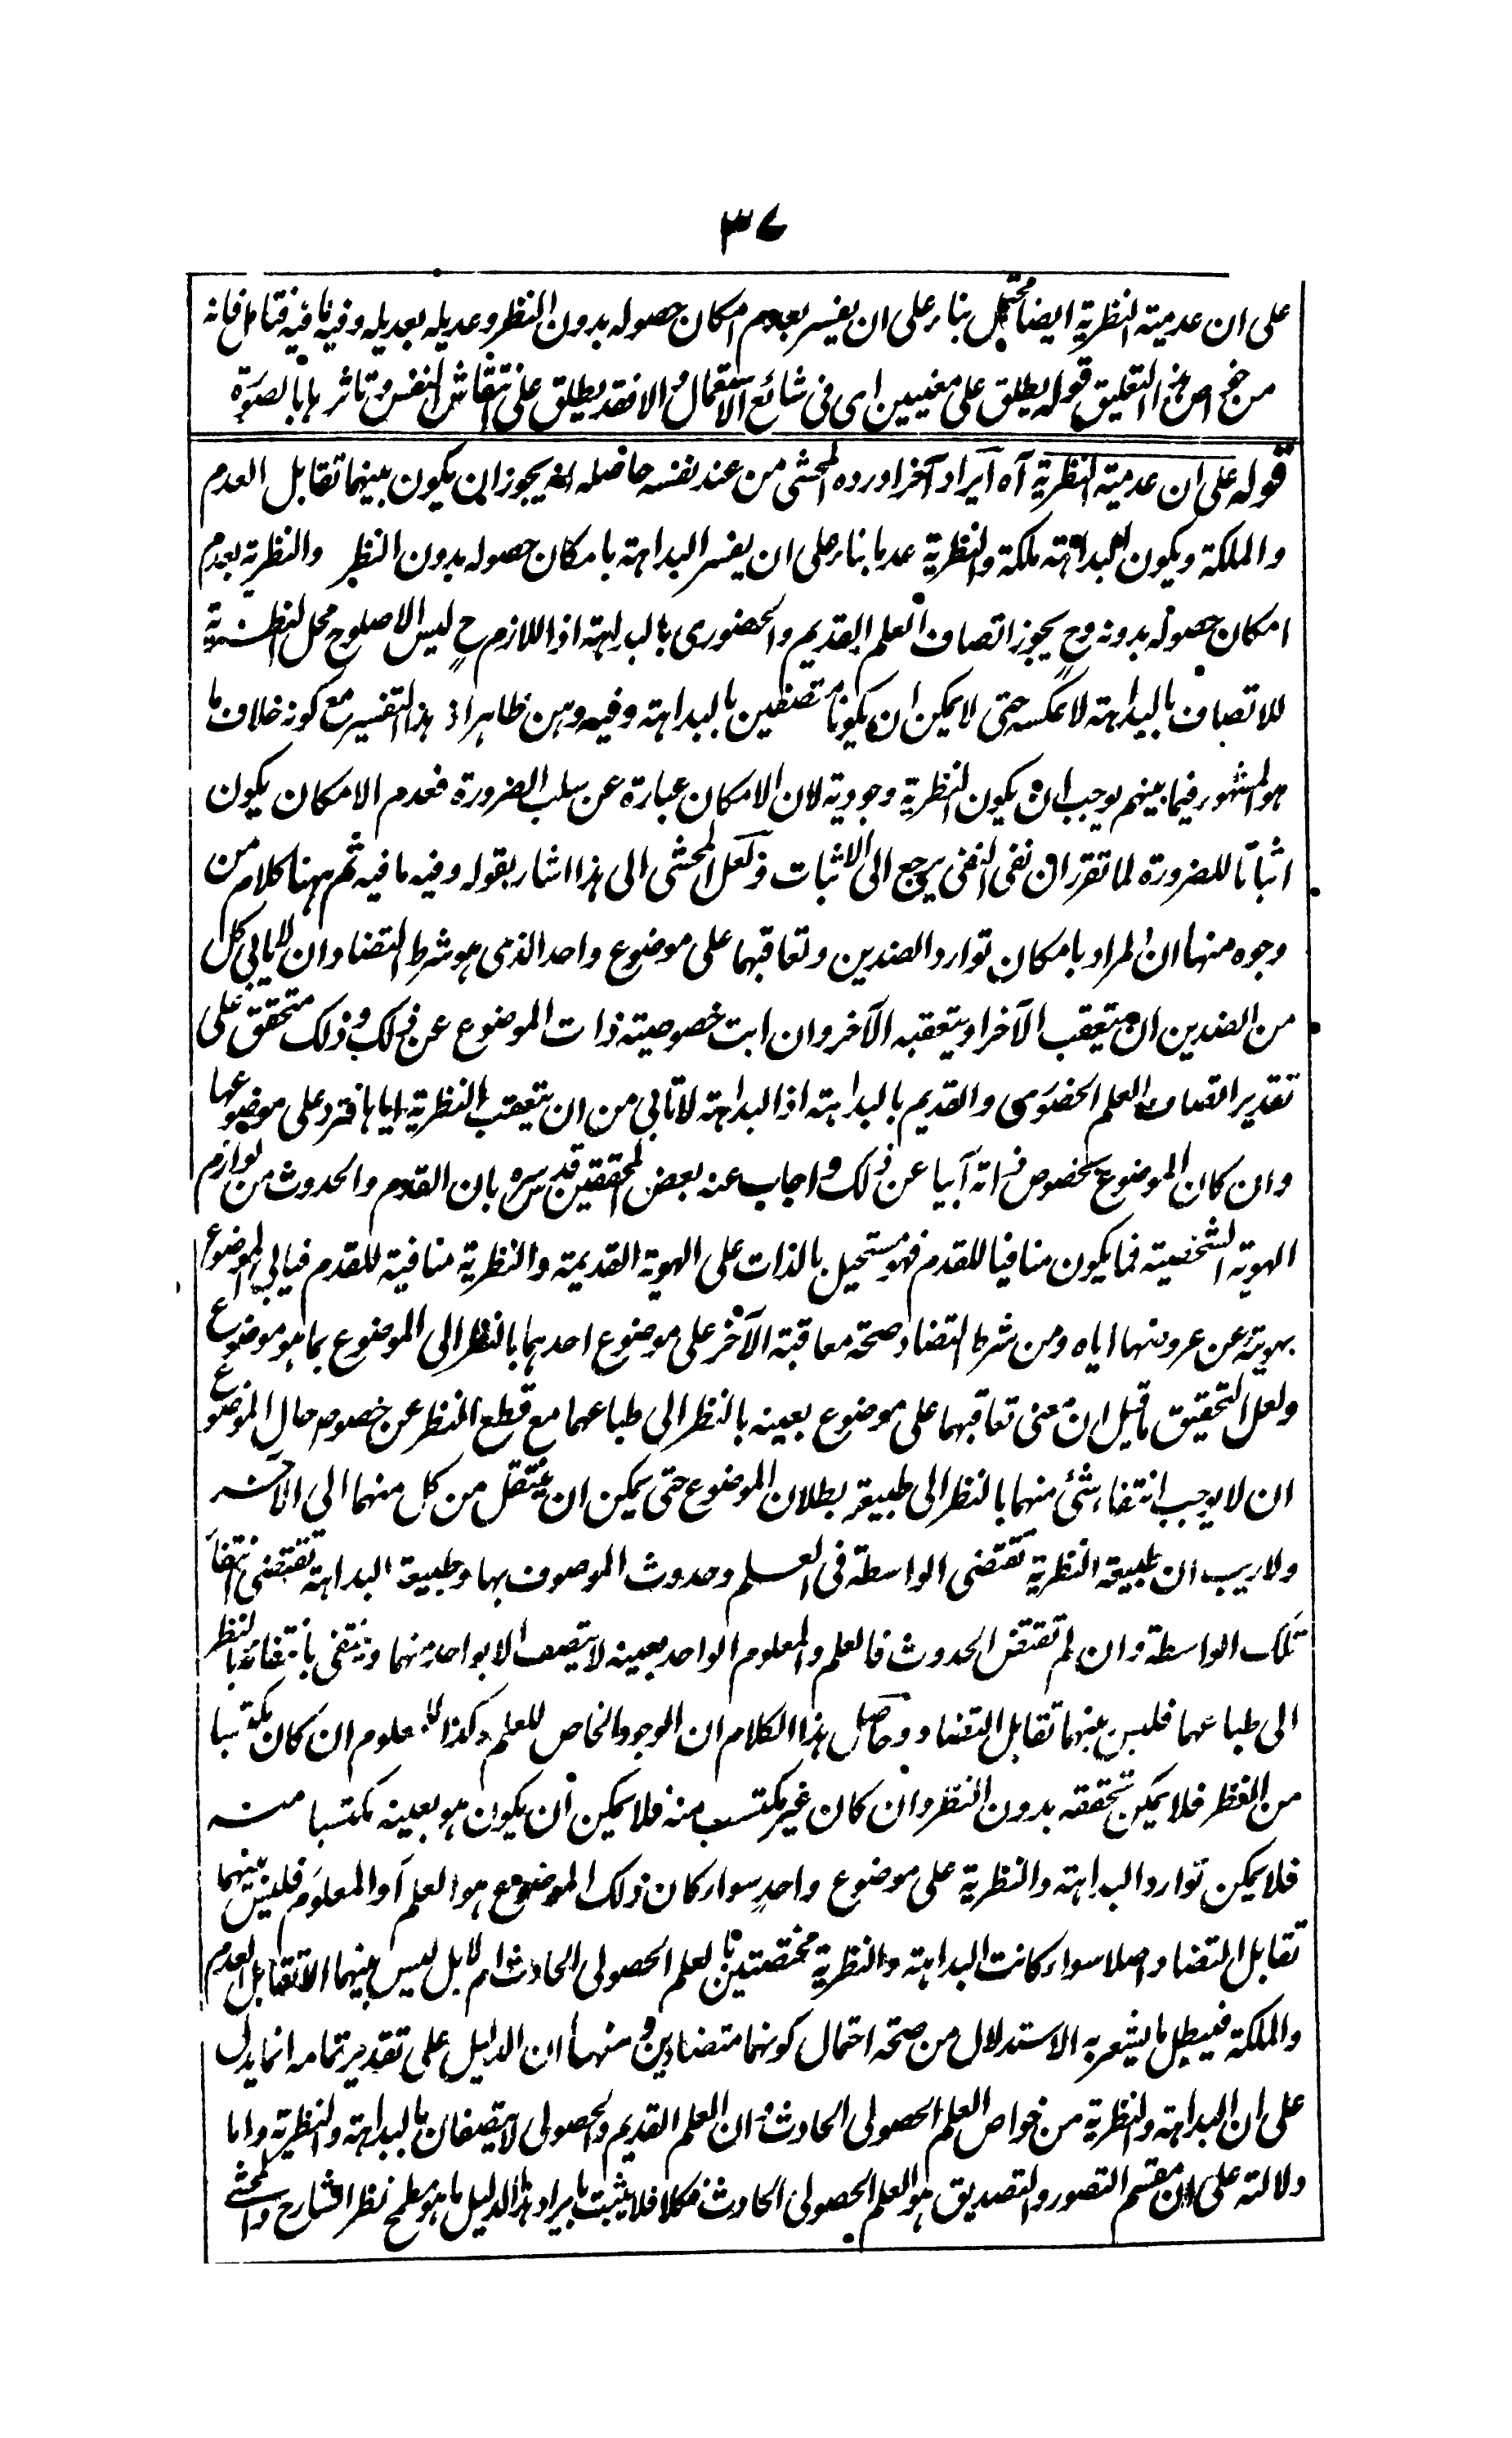 ٣٧
على ان عدمية النظرية ايضا محتمل بناء على ان يفسر بعدم امكان حصوله بدون النظر وعديله بعديله وفيه ما فيه فتامل فانه
من خواص هذا التعليق قوله يطلق على معنيين اى فى شائع الاستعمال والا فقد يطلق على انتقاش النفس وتاثرها بالصورة
قوله على ان عدمية النظرية آه ايراد آخر اورده المحشى من عند نفسه حاصله انه يجوز ان يكون بينهما تقابل العدم
والملكة ويكون البداهة ملكة والنظرية عدما بناء على ان يفسر البداهة بامكان حصوله بدون النظر والنظرية بعدم
امكان حصوله بدونه وح يجوز اتصاف العلم القديم والحضورى بالبداهة اذ اللازم ح ليس الا صلوح محل النظرية
للاتصاف بالبداهة لا عكسه حتى لا يمكن ان يكونا متصفين بالبداهة وفيه وهن ظاهر اذ هذا التفسير مع كونه خلاف ما
هو المشهور فيما بينهم يوجب ان يكون النظرية وجودية لان الامكان عبارة عن سلب الضرورة فعدم الامكان يكون
اثباتا للضرورة لما تقرر ان نفى النفى يرجع الى الاثبات ولعل المحشى الى هذا اشار بقوله وفيه ما فيه ثم ههنا كلام من
وجوه منها ان المراد بامكان توارد الضدين وتعاقبهما على موضوع واحد الذى هو شرط التضاد ان لا يابى كل
من الضدين ان يتعقب الآخر او يتعقبه الآخر وان ابت خصوصية ذات الموضوع عن ذلك وذلك متحقق على
تقدير اتصاف العلم الحضورى والقديم بالبداهة اذ البداهة لا تابى من ان يتعقب النظرية اياها فترد على موضوعها
وان كان الموضوع بخصوص ذاته آبيا عن ذلك واجاب عنه بعض المحققين قدس سره بان القدم والحدوث من لوازم
الهوية الشخصية فما يكون منافيا للقدم فهو مستحيل بالذات على الهوية القديمة والنظرية منافية للقدم فيابى الموضوع
بهويته عن عروضها اياه ومن شرط التضاد صحة معاقبة الآخر على موضوع احدهما بالنظر الى الموضوع بما هو موضوع
ولعل التحقيق ما قيل ان معنى تعاقبهما على موضوع بعينه بالنظر الى طباعهما مع قطع النظر عن خصوص حال الموضوع
ان لا يوجب انتفاء شئ منهما بالنظر الى طبيعته بطلان الموضوع حتى يمكن ان ينتقل من كل منهما الى الآخر
ولا ريب ان طبيعة النظرية تقتضى الواسطة فى العلم وحدوث الموصوف بها وطبيعة البداهة تقتضى انتفاء
تلك الواسطة وان لم تقتض الحدوث فالعلم والمعلوم الواحد بعينه لا يتصف الا بواحد منهما وينتفى بانتفائه بالنظر
الى طباعهما فليس بينهما تقابل التضاد وحاصل هذا الكلام ان الوجود الخاص للعلم وكذا للمعلوم ان كان مكتسبا
من النظر فلا يمكن تحققه بدون النظر وان كان غير مكتسب منه فلا يمكن ان يكون هو بعينه مكتسبا منه
فلا يمكن توارد البداهة والنظرية على موضوع واحد سواء كان ذلك الموضوع هو العلم او المعلوم فليس بينهما
تقابل التضاد اصلا سواء كانت البداهة والنظرية مختصتين بالعلم الحصولى الحادث ام لا بل ليس بينهما الا تقابل العدم
والملكة فيبطل ما يشعر به الاستدلال من صحة احتمال كونهما متضادين ومنها ان الدليل على تقدير تمامه انما يدل
على ان البداهة والنظرية من خواص العلم الحصولى الحادث وان العلم القديم والحصولى لا يتصفان بالبداهة والنظرية واما
دلالته على ان مقسم التصور والتصديق هو العلم الحصولى الحادث فكلا فلا يثبت بايراد هذا الدليل ما هو مطمح نظر الشارح والمحشى